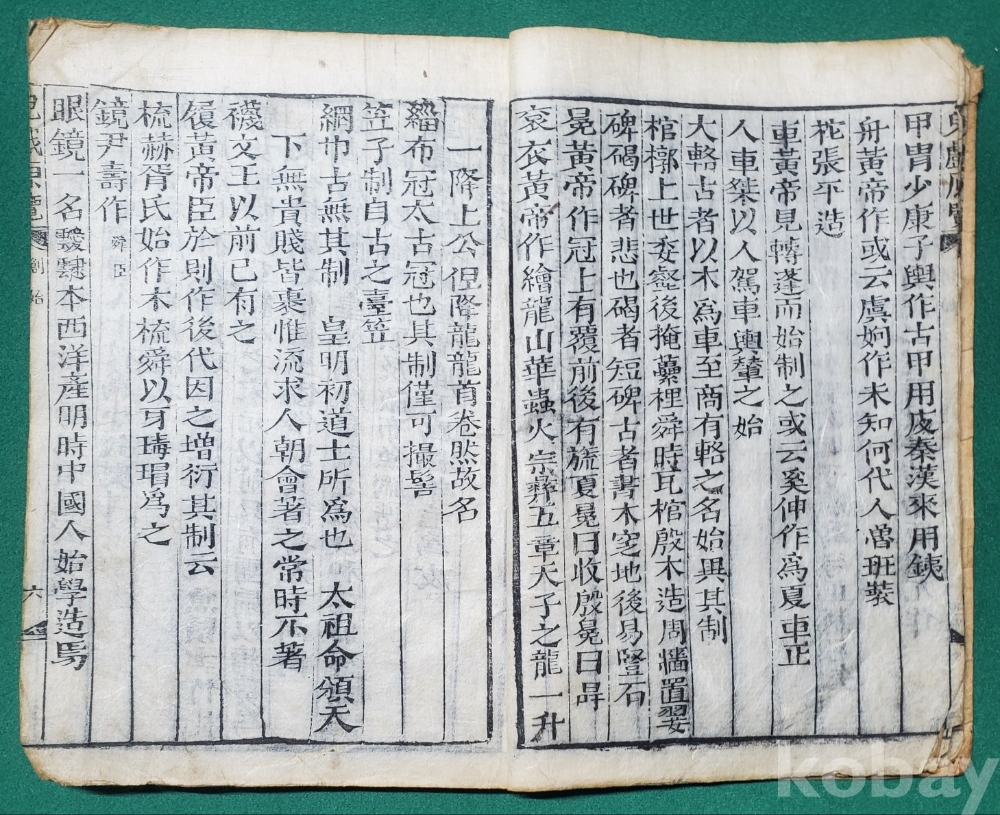 甲胄少康子輿作古甲用皮秦漢來用銕
舟黃帝作或云虞姁作未知何代人僧班裝
柁張平造
車黃帝見轉蓬而始制之或云奚伸作爲夏車正
人車桀以人駕車輿輦之始
大輅古者以木爲車至商有輅之名始異其制
棺槨上世委壑後掩虆梩舜時瓦棺殷木造周牆置翣
碑碣碑者悲也碣者短碑古者書木窆地後易豎石
冕黃帝作冠上有覆前後有旒夏冕曰收殷冕曰冔
衮衣黃帝作繪龍山華蟲火宗彝五章天子之龍一升
一降上公但降龍龍首卷然故名
緇布冠太古冠也其制僅可撮髻
笠子制自古之臺笠
網巾古無其制 皇明初道士所爲也 太祖命頒天
下無貴賤皆裹惟流求人朝會著之常時不著
襪文王以前已有之
履黃帝臣於則作後代因之增衍其制云
梳赫胥氏始作木梳舜以牙瑇瑁爲之
鏡尹壽作 舜臣
眼鏡一名靉靆本西洋產明時中國人始學造焉
覽 創始 六
kobay